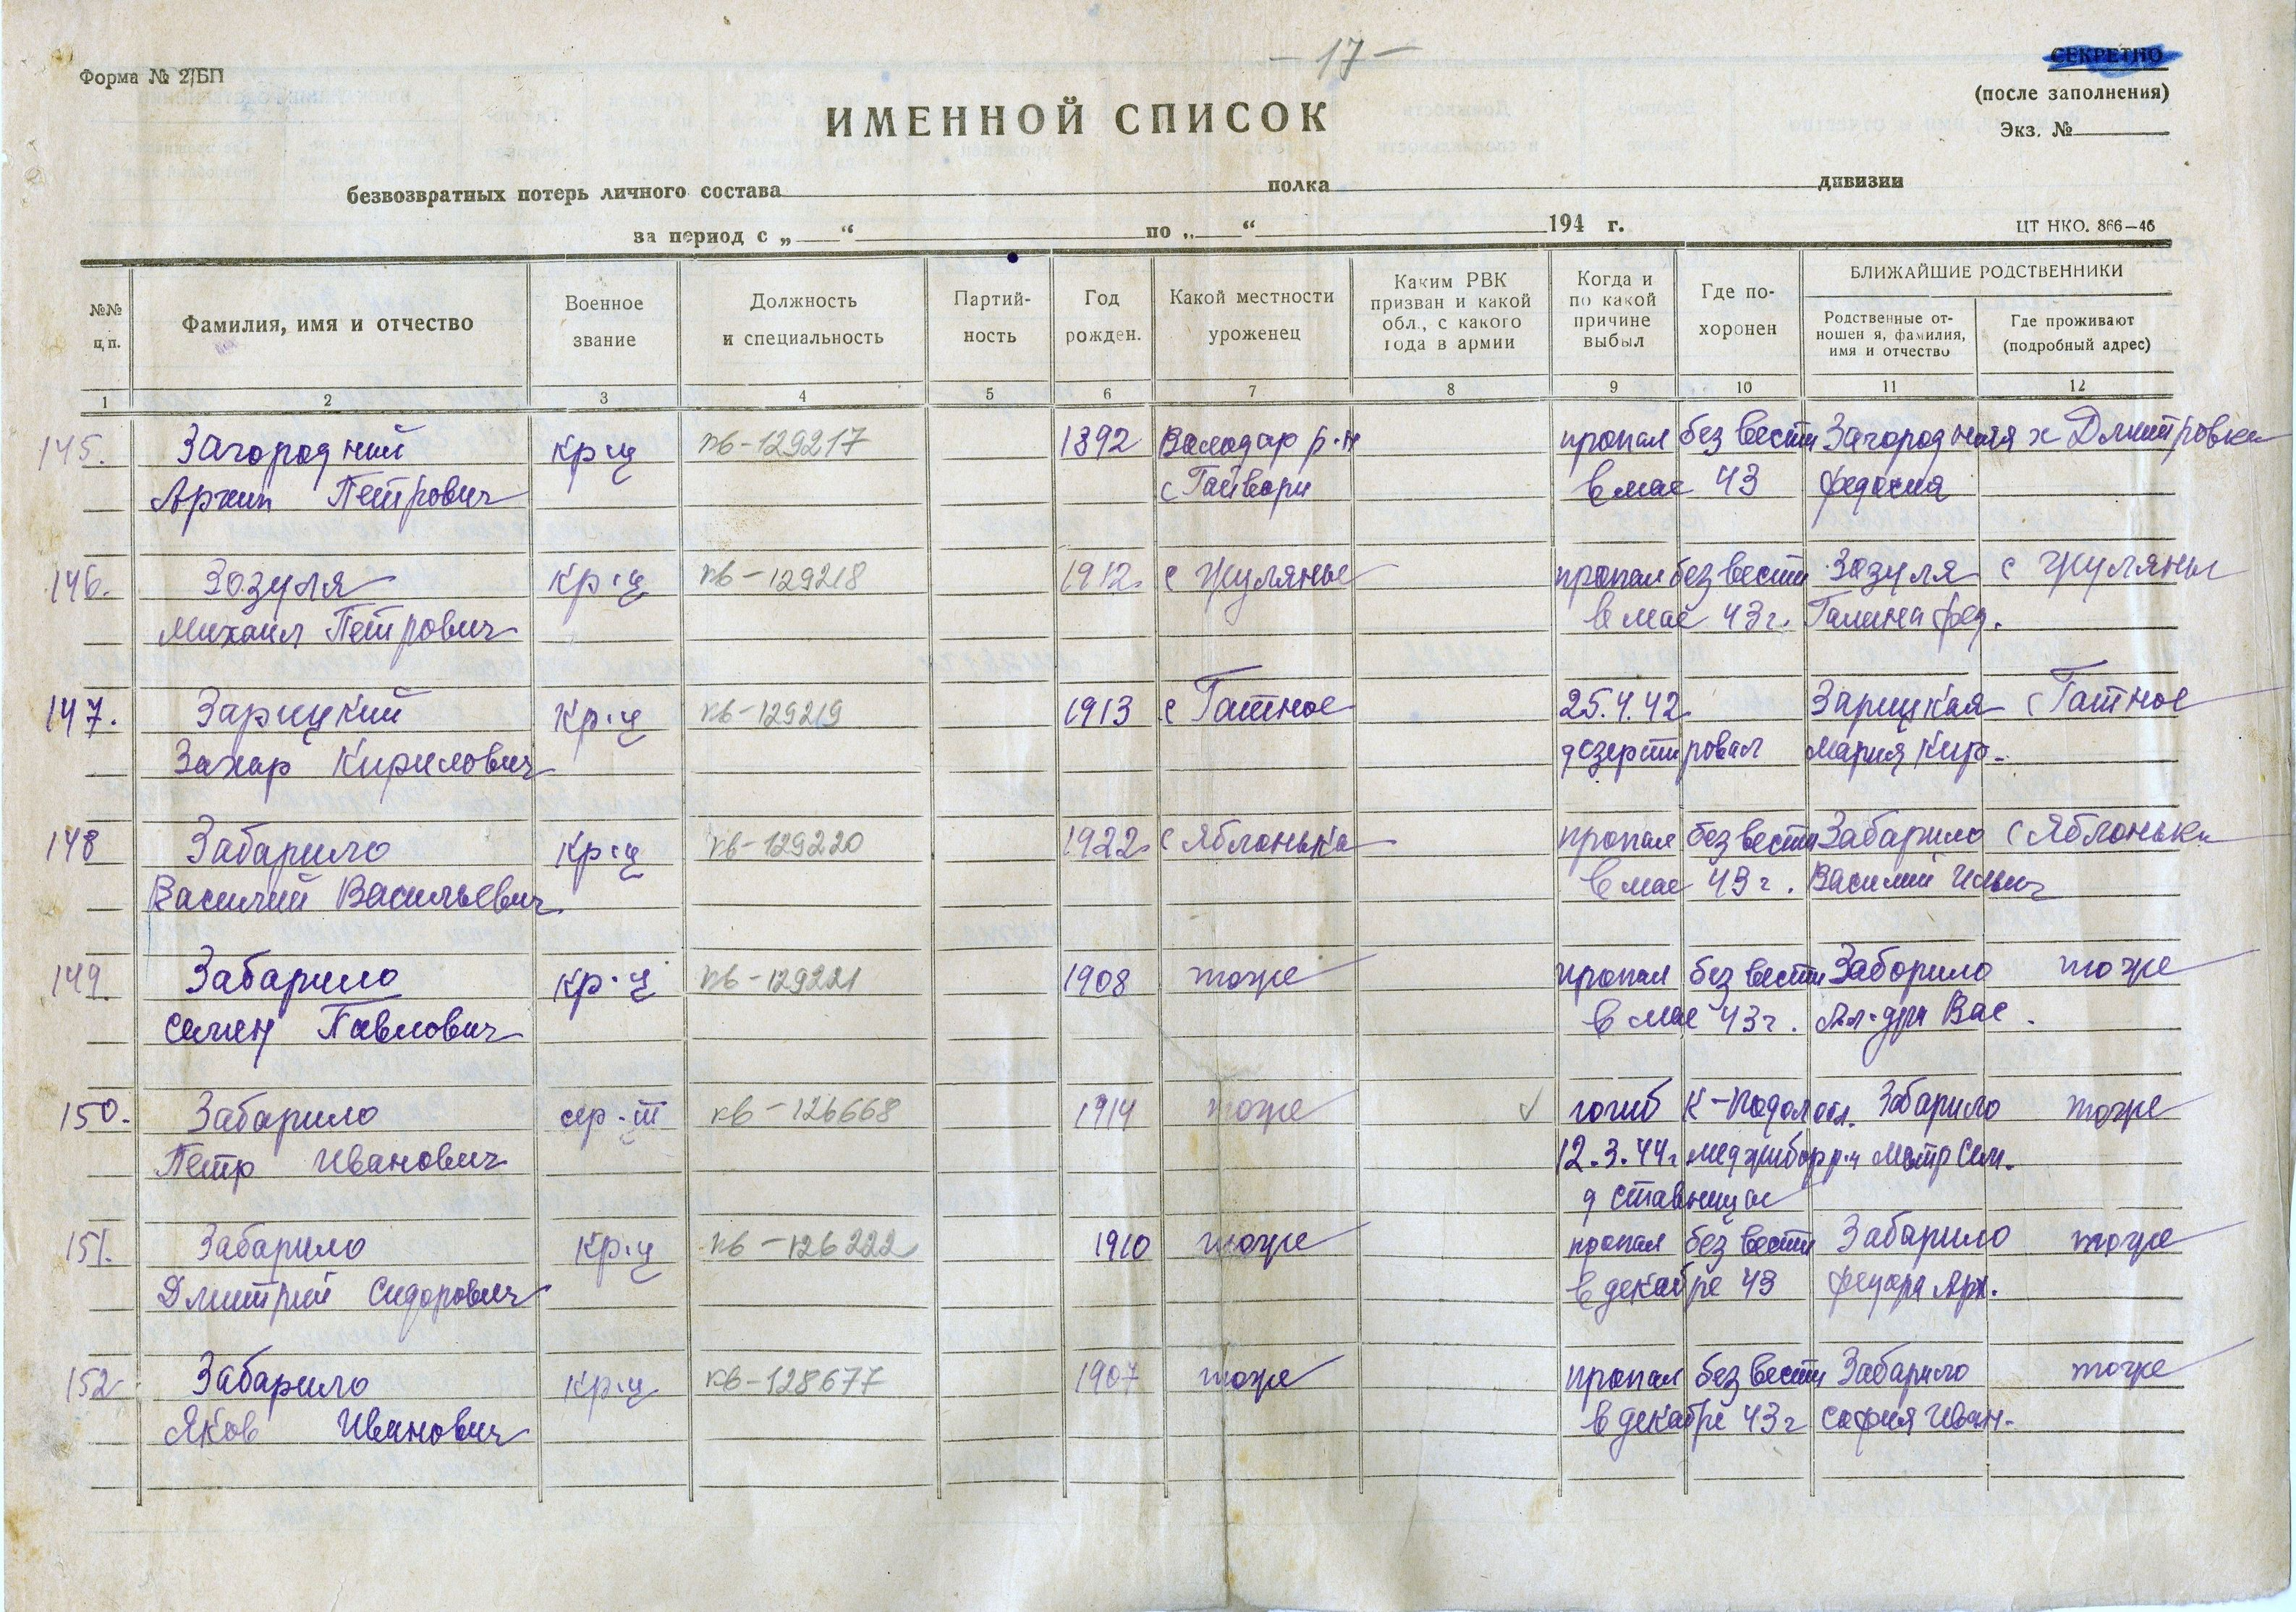 - 17 -
Форма № 2/БП
СЕКРЕТНО
(после заполнения)
Экз. №
ИМЕННОЙ СПИСОК
безвозвратных потерь личного состава полка дивизии
за период с „ “ по „ “ 194 г.
ЦТ НКО. 866—46
№№ п.п.
Фамилия, имя и отчество
Военное звание
Должность и специальность
Партийность
Год рожден.
Какой местности уроженец
Каким РВК призван и какой обл., с какого года в армии
Когда и по какой причине выбыл
Где похоронен
БЛИЖАЙШИЕ РОДСТВЕННИКИ
Родственные отношен я, фамилия, имя и отчество
Где проживают (подробный адрес)
1 2 3 4 5 6 7 8 9 10 11 12
145. Загородний кр-ц кв-129217 1892 Володар р-н пропал без вести Загородняя х Дмитровка
Архип Петрович с Гайвори в мае 43 Федосия
146. Зозуля кр-ц кв-129218 1912 с Жуляны пропал без вести Зозуля с Жуляны
Михаил Петрович в мае 43 г. Галина Фед.
147. Зарицкий кр-ц кв-129219 1913 с Гатное 25.4.42 Зарицкая с Гатное
Захар Кирилович дезертировал Мария Кир.
148 Забарило кр-ц кв-129220 1922 с Яблонька пропал без вести Забарило с Яблонька
Василий Васильевич в мае 43 г. Василий Ильич
149. Забарило кр-ц кв-129221 1908 тоже пропал без вести Заборило тоже
Семен Павлович в мае 43 г. Ал-дра Вас.
150. Забарило сер-т кв-126668 1914 тоже погиб К-Подол обл. Забарило тоже
Петр Иванович 12.3.44 г. Меджибор р-н Мотр Сем.
д Ставница
151. Забарило кр-ц кв-126222 1910 тоже пропал без вести Забарило тоже
Дмитрий Сидорович в декабре 43 Федора Арх.
152 Забарило кр-ц кв-128677 1907 тоже пропал без вести Забарило тоже
Яков Иванович в декабре 43 г София Иван.